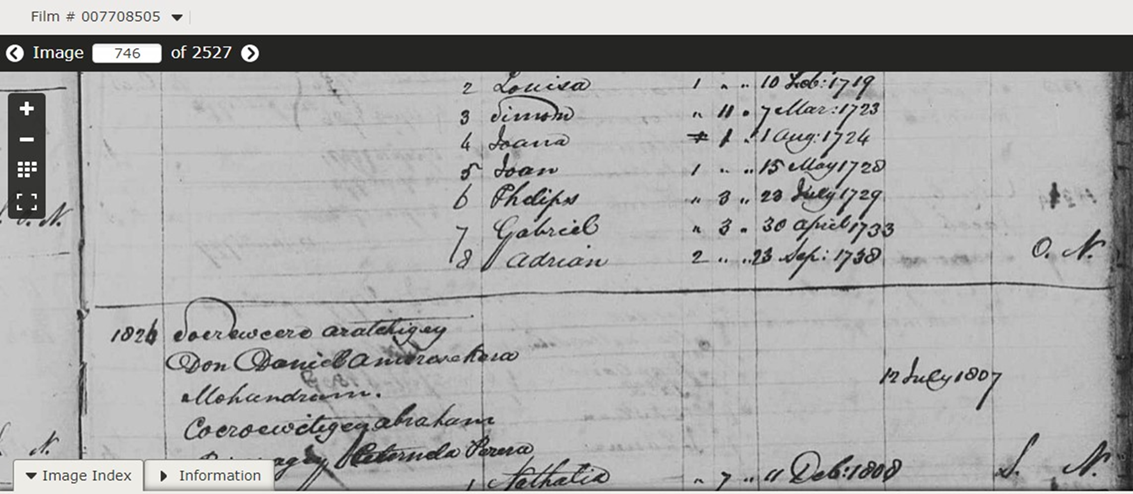 Film # 007708505
Image 746 of 2527
2 Louisa 1 " " 10 Feb: 1719
3 Simon " 11 " 7 Mar: 1723
4 Joana 1 " 1 Aug: 1724
5 Joan 1 " " 15 May 1728
6 Phelips " 3 " 23 July 1729
7 Gabriel " 3 " 30 April 1733
8 Adrian 2 " " 23 Sep: 1738
O. N.
1826 aratchigey
Don Daniel
Mohandram.
abraham
Peternela Perera
12 July 1807
1 Nathalia " 7 " 11 Deb: 1808
S. N.
Image Index
Information